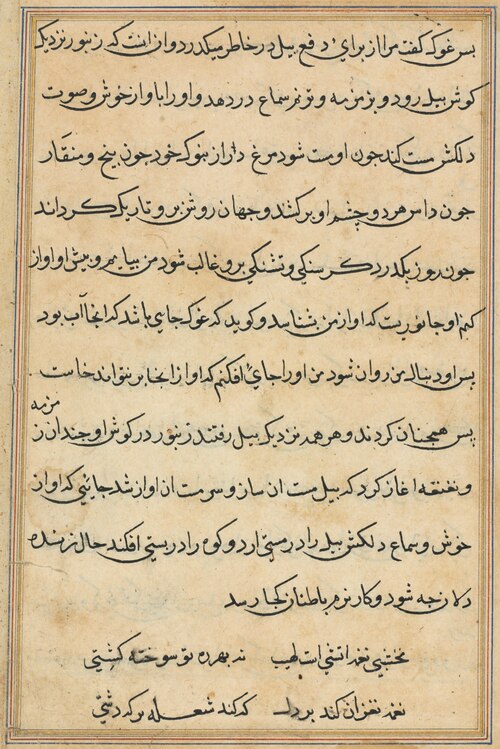 پس غوکه کفت مرا از برای دفع پیل در خاطر میکذرد و ان انست که زنبور نزدیک
کوش پیل رود و بزمزمه و ترنم سماع در دهد و او را باواز خوش و صوت
دلکش مست کند جون او مست شود مرغ دراز نوک خود جون پنج و منقار
جون داس هر دو چشم او برکشد و جهان روشن برو تاریک کرداند
جون روز بکذرد کرسنکی و تشنکی برو غالب شود من بیایم و پیش او اواز
کنم او جانوریست که اواز من بشناسد و کوید که غوک جایی باشد که انجا آب بود
پس او دنبال من روان شود من او را جایی افکنم که او از انجا بر نتواند خاست
پس همچنان کردند و هر همه نزدیک پیل رفتند زنبور در کوش او جندان زمزمه
و نغنغه اغاز کرد که پیل مست ان ساز و سرمست ان اواز شد جائی که اواز
خوش و سماع دلکش پیل را در مستی ارد و کوه را در پستی افکند حال زنده
دلان جه شود و کار نرم باطنان کجا رسد
نخشبی نغمه اتشی است طیب نه بهره تو سوخته کشتی
نغمه نغزان کند بر دل که کند شعله بر که دشتی